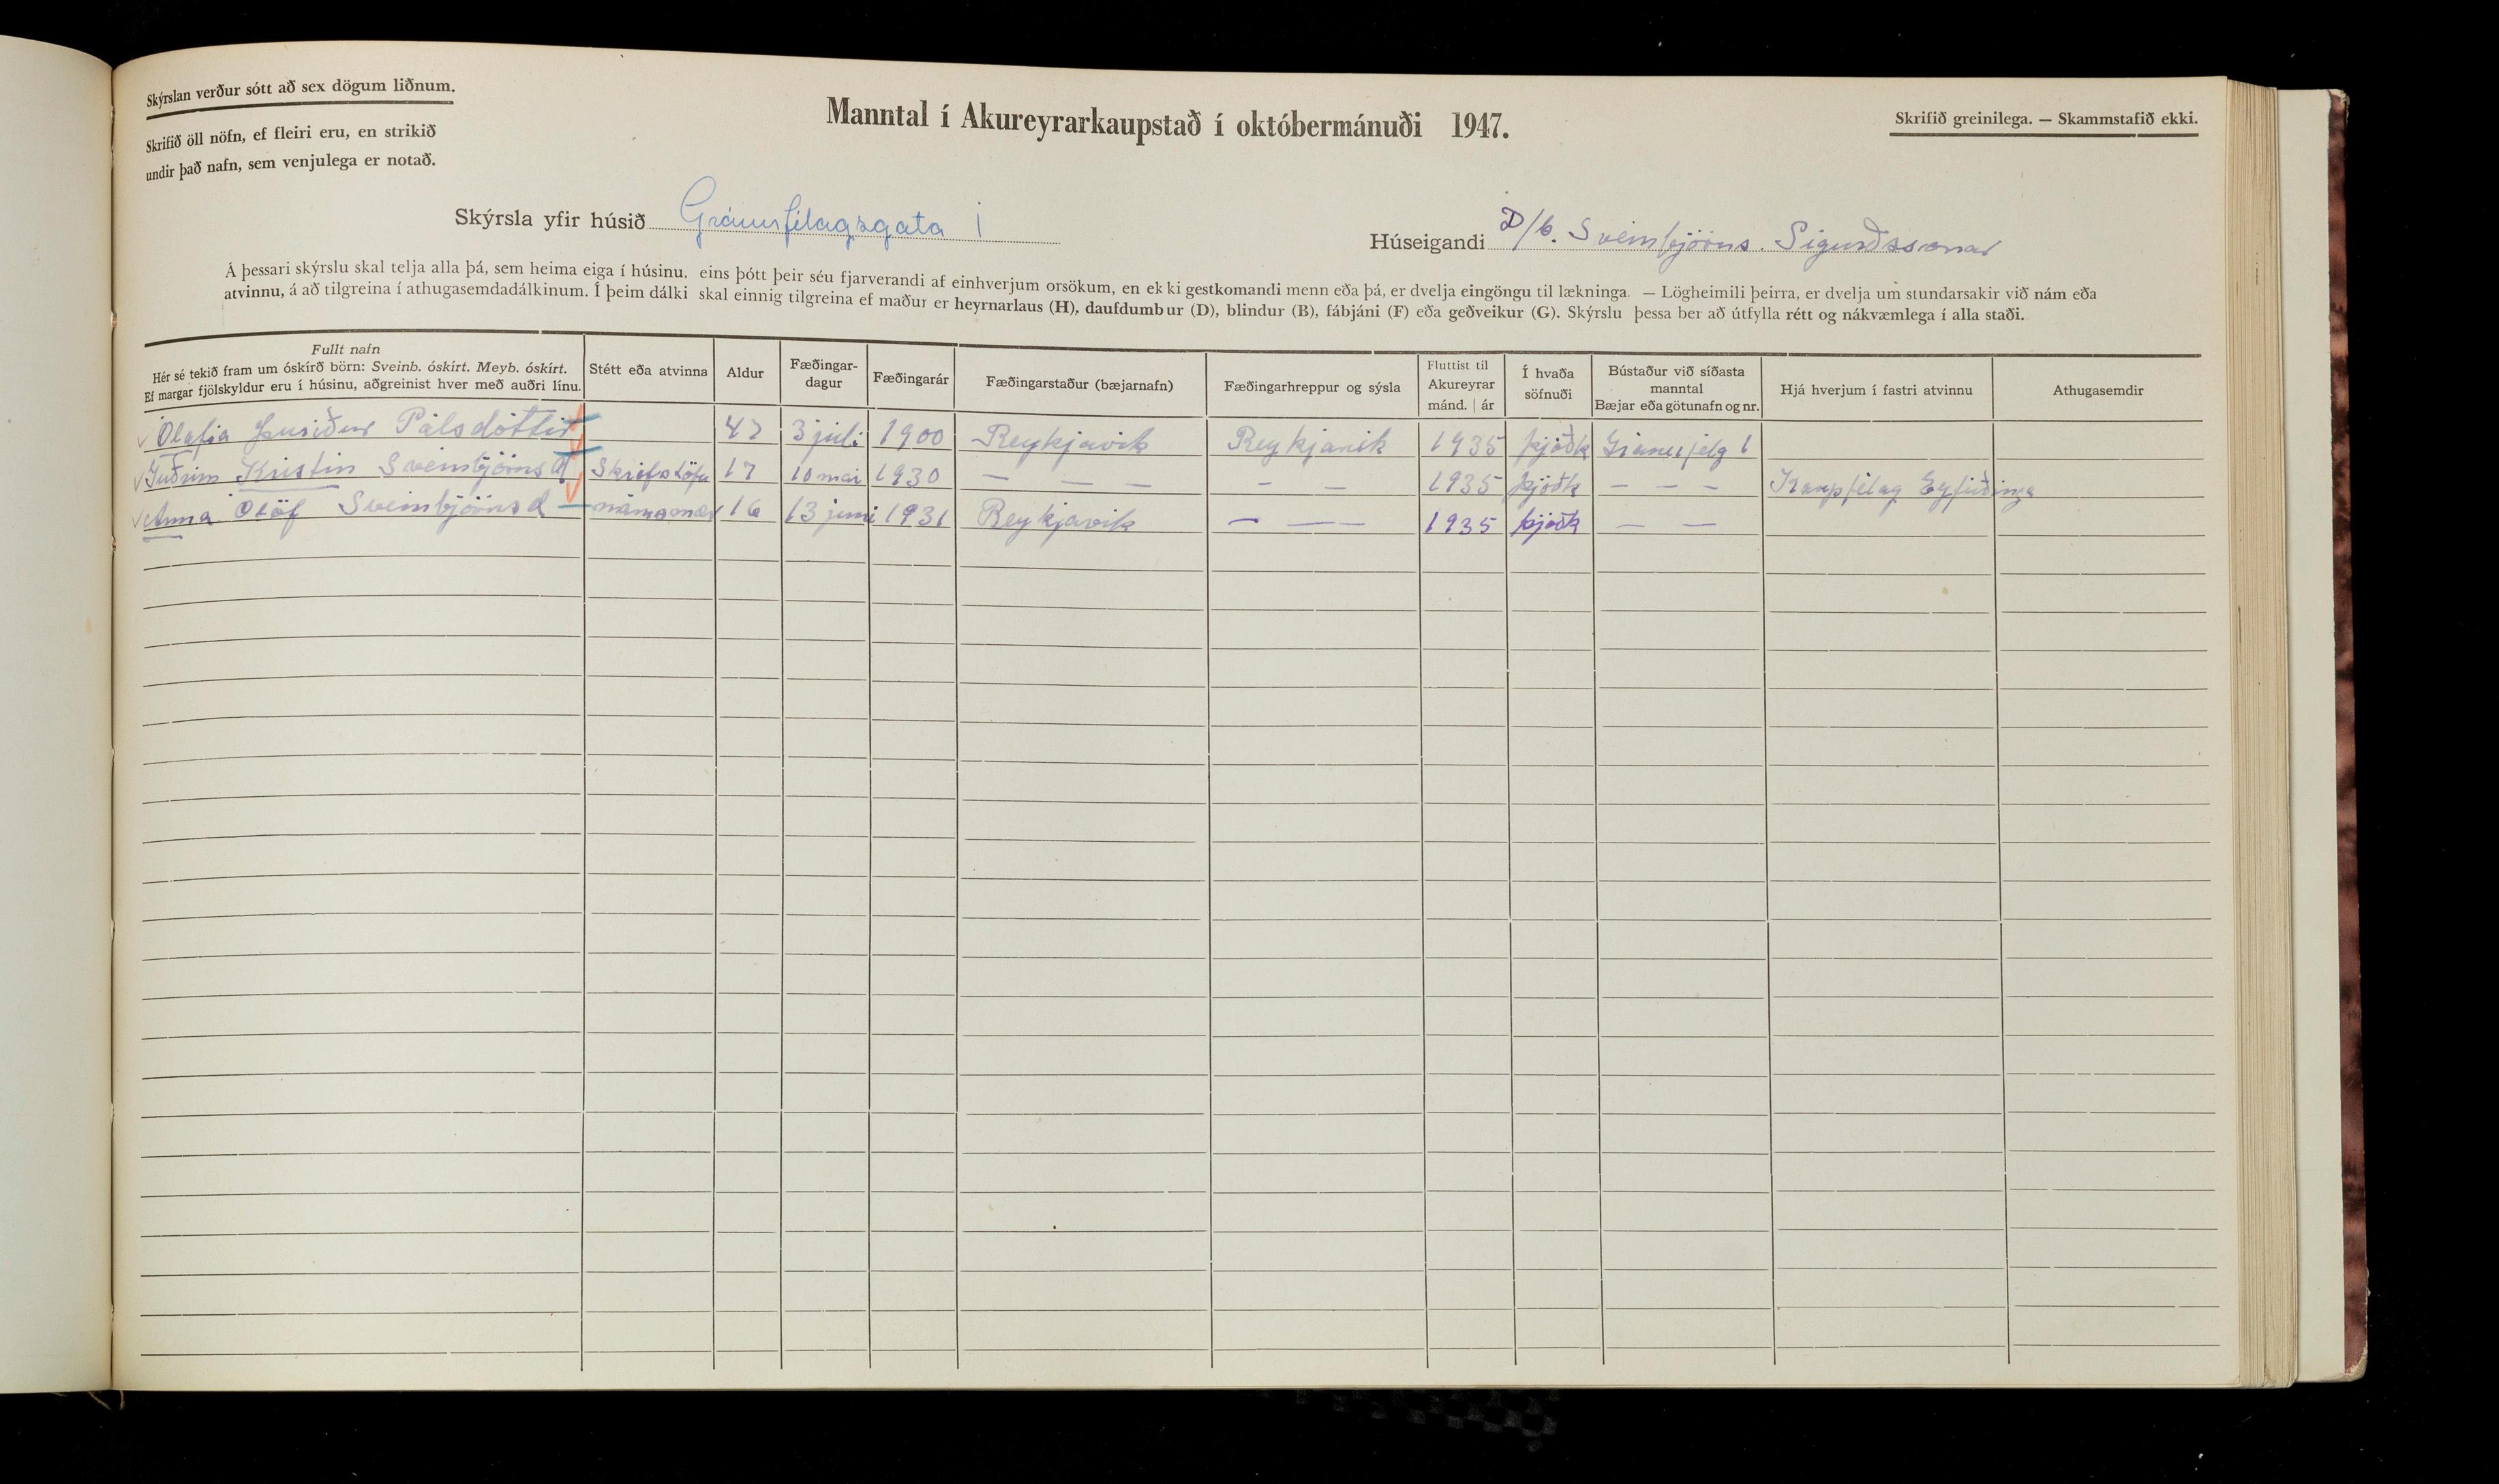 Skýrslan verður sótt að sex dögum liðnum.
Skrifið öll nöfn, ef fleiri eru, en strikið
undir það nafn, sem venjulega er notað.
Manntal í Akureyrarkaupstað í októbermánuði 1947.
Skrifið greinilega. — Skammstafið ekki.
Skýrsla yfir húsið Gránufélagsgata 1
Húseigandi D/b. Sveinbjörns. Sigurðssonar
Á þessari skýrslu skal telja alla þá, sem heima eiga í húsinu, eins þótt þeir séu fjarverandi af einhverjum orsökum, en ekki gestkomandi menn eða þá, er dvelja eingöngu til lækninga. — Lögheimili þeirra, er dvelja um stundarsakir við nám eða
atvinnu, á að tilgreina í athugasemdadálkinum. Í þeim dálki skal einnig tilgreina ef maður er heyrnarlaus (H), daufdumbur (D), blindur (B), fábjáni (F) eða geðveikur (G). Skýrslu þessa ber að útfylla rétt og nákvæmlega í alla staði.
Fullt nafn
Hér sé tekið fram um óskírð börn: Sveinb. óskírt. Meyb. óskírt.
Ef margar fjölskyldur eru í húsinu, aðgreinist hver með auðri línu.
Stétt eða atvinna
Aldur
Fæðingar-
dagur
Fæðingarár
Fæðingarstaður (bæjarnafn)
Fæðingarhreppur og sýsla
Fluttist til
Akureyrar
mánd. | ár
Í hvaða
söfnuði
Bústaður við síðasta
manntal
Bæjar eða götunafn og nr.
Hjá hverjum í fastri atvinnu
Athugasemdir
Ólafia Þuriður Pálsdóttir 47 3 júli 1900 Reykjavik Reykjavik 1935 þjóðk Gránufélg 1
Guðrún Kristin Sveinbjörnsd Skrifstöfu 17 10 mai 1930 — — — — — 1935 þjóðk — — — Kaupfélag Eyfirðinga
Anna Ólöf Sveinbjörnsd námsmær 16 13 juni 1931 Reykjavik — — — 1935 þjóðk — —